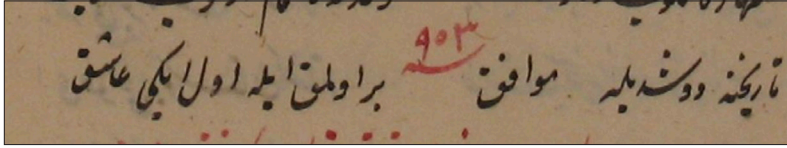 تاریخنه دوشدیله موافق ۹۵۳ بر اولمق ایله اول ایکی عاشق